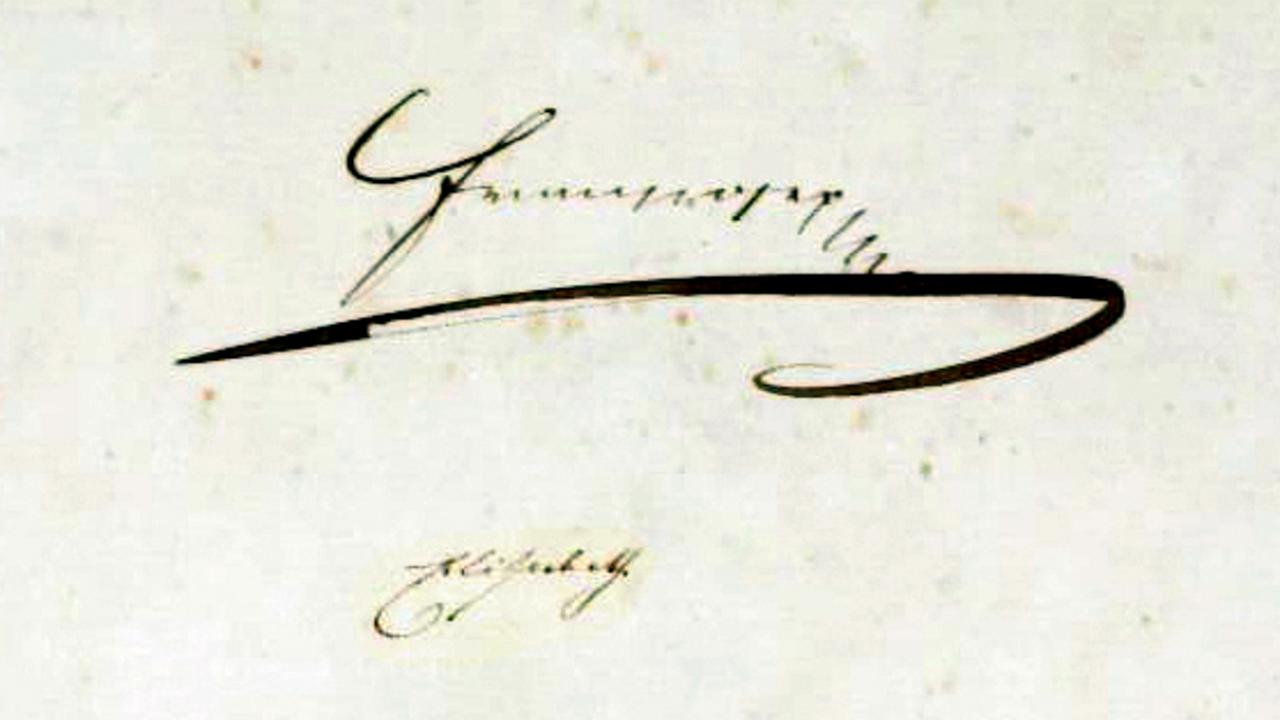 Franz Joseph
Elisabeth